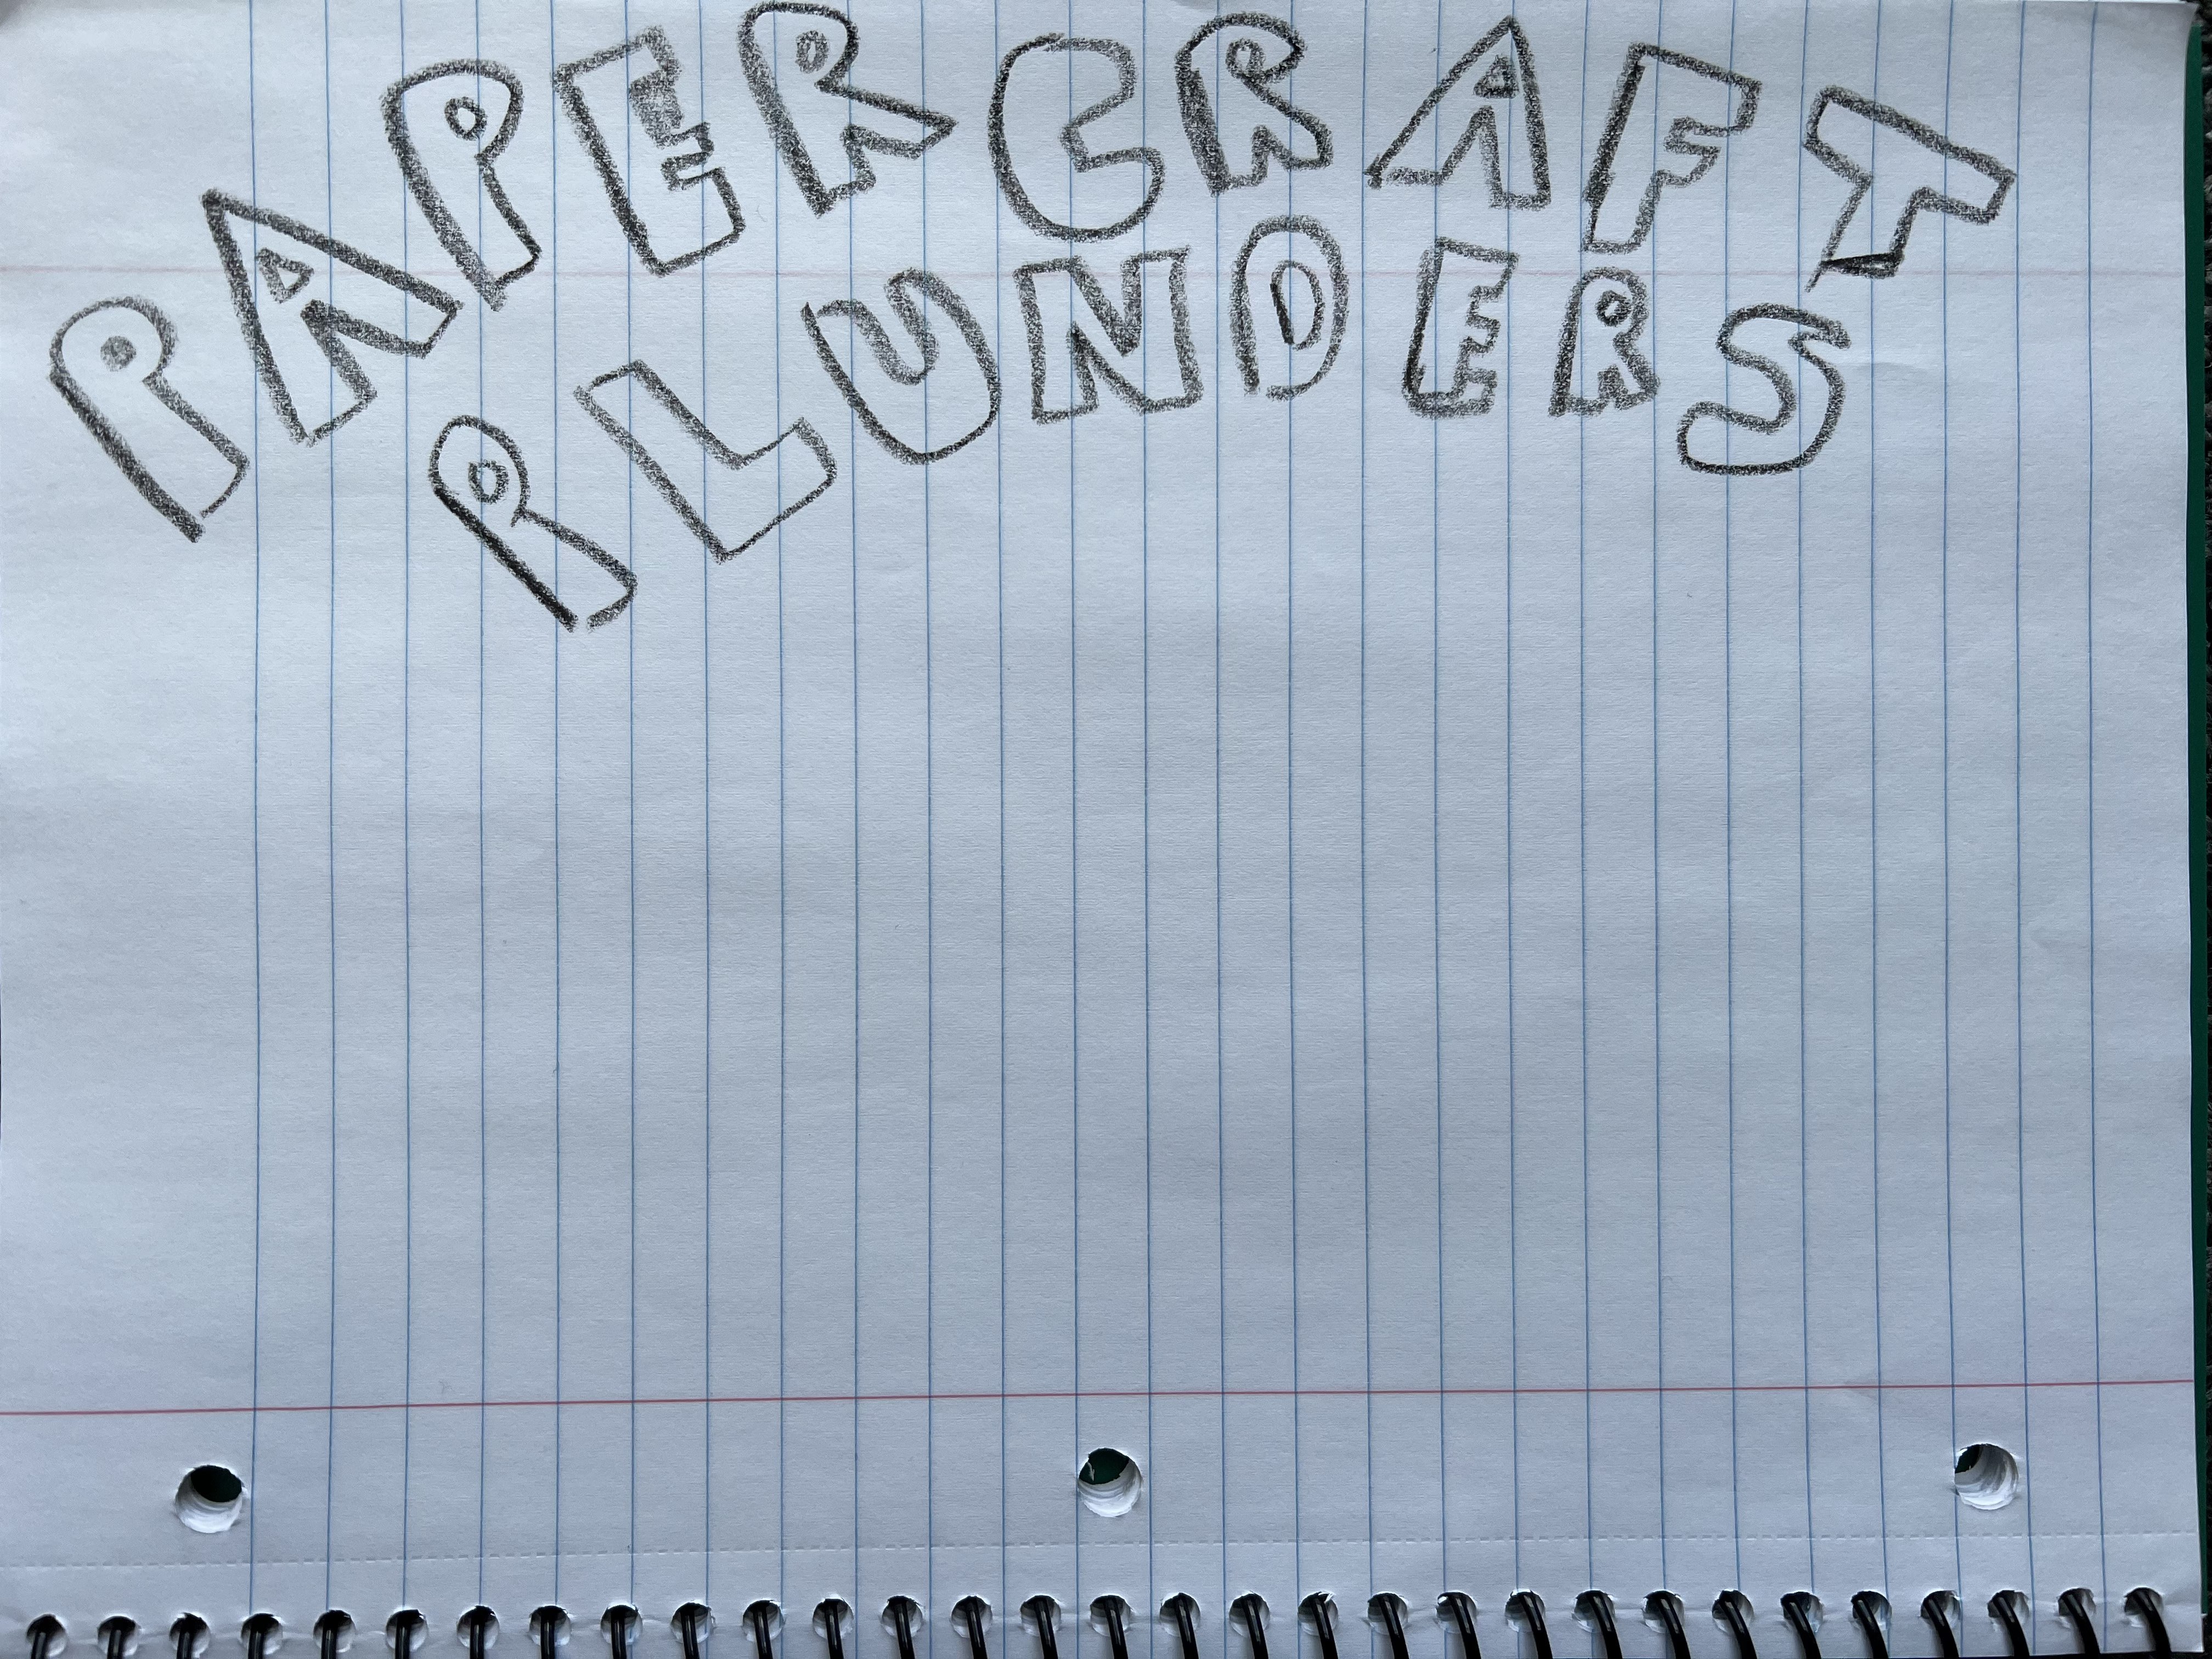 PAPER CRAFT
PLUNDERS